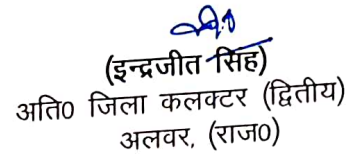 (इन्द्रजीत सिंह)
अति० जिला कलक्टर (द्वितीय)
अलवर, (राज०)